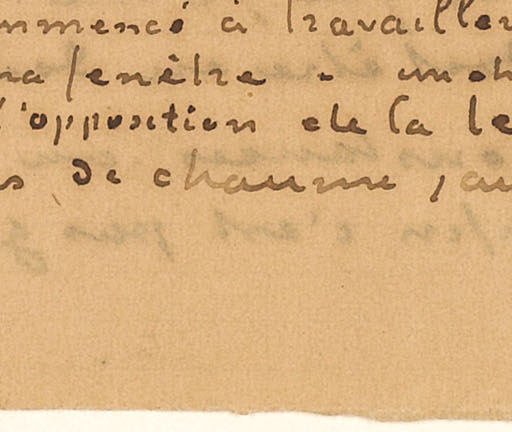 mmencé à travailler
na fenêtre - un ch
l'opposition de la te
s de chaume, au